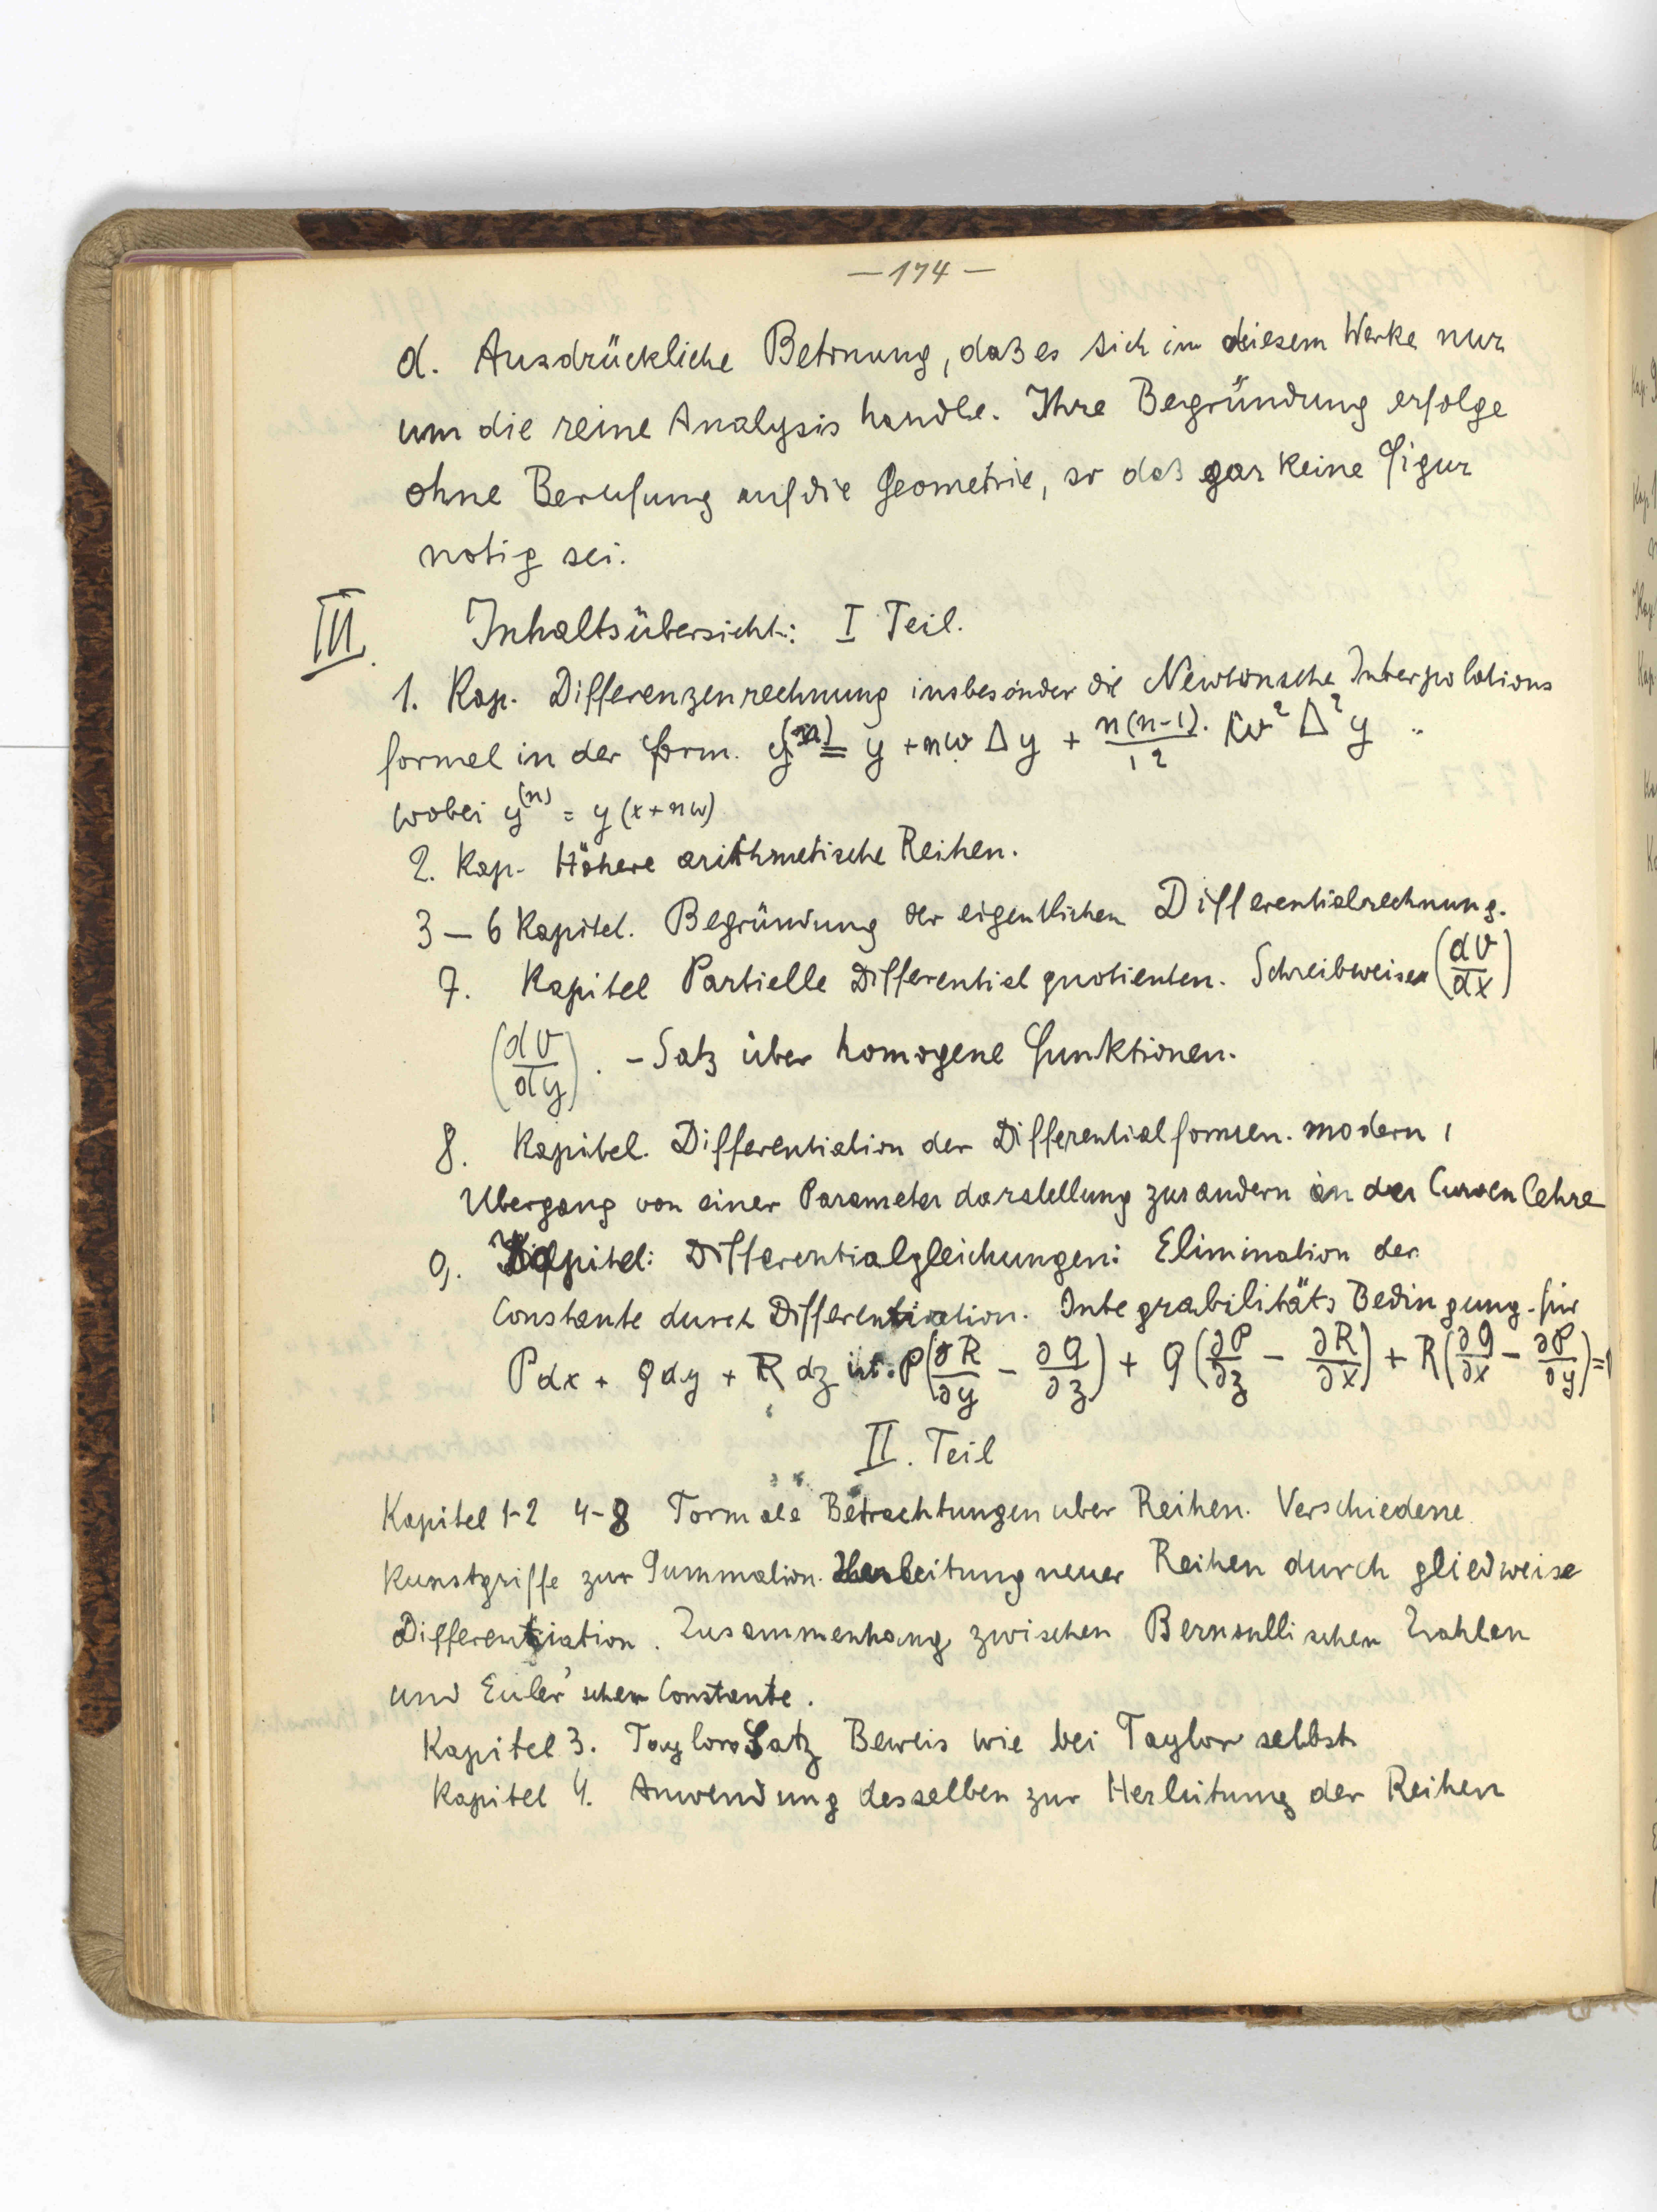 — 174 —
d. Ausdrückliche Betonung, daß es sich in diesem Werke nur
um die reine Analysis handle. Ihre Begründung erfolge
ohne Berufung auf die Geometrie, so daß gar keine Figur
notig sei.
III. Inhaltsübersicht: I Teil.
1. Kap. Differenzenrechnung insbesonder die Newtonsche Interpolations
formel in der Form. y^(n) = y + nw Δy + n(n-1)/12 · w² Δ² y ..
wobei y^(n) = y (x + nw)
2. Kap. Höhere arithmetische Reihen.
3 — 6 Kapitel. Begründung der eigentlichen Differentialrechnung.
7. Kapitel Partielle Differentialquotienten. Schreibweisen (dV/dx)
(dV/dy). – Satz über homogene Funktionen.
8. Kapitel. Differentiation der Differentialformen. modern,
Ubergang von einer Parameterdarstellung zur andern in der Curvenlehre
9. Kapitel: Differentialgleichungen: Elimination der
Constante durch Differentiation. Integrabilitäts Bedingung für
Pdx + Qdy + R dz ist. P(∂R/∂y − ∂Q/∂z) + Q(∂P/∂z − ∂R/∂x) + R(∂Q/∂x − ∂P/∂y) =
II. Teil
Kapitel 1-2 4-8 Formale Betrachtungen uber Reihen. Verschiedene
Kunstgriffe zur Summation. Herleitung neuer Reihen durch gliedweise
Differentiation. Zusammenhang zwischen Bernoullischen Zahlen
und Euler'schen Constante.
Kapitel 3. Taylors Satz Beweis wie bei Taylor selbst
Kapitel 4. Anwendung desselben zur Herleitung der Reihen